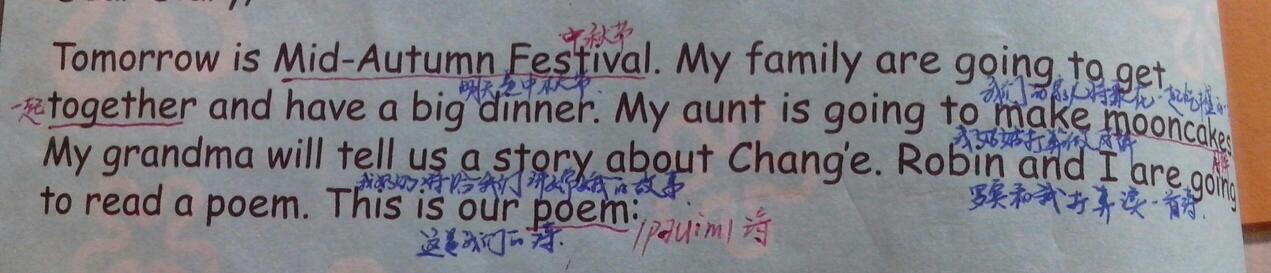 中秋节
Tomorrow is Mid-Autumn Festival. My family are going to get
明天是中秋节.
一起 together and have a big dinner. My aunt is going to make mooncakes
My grandma will tell us a story about Chang'e. Robin and I are going
我奶奶将给我们讲嫦娥的故事.
罗宾和我打算读一首诗.
to read a poem. This is our poem:
这是我们的诗. /pəuim/ 诗